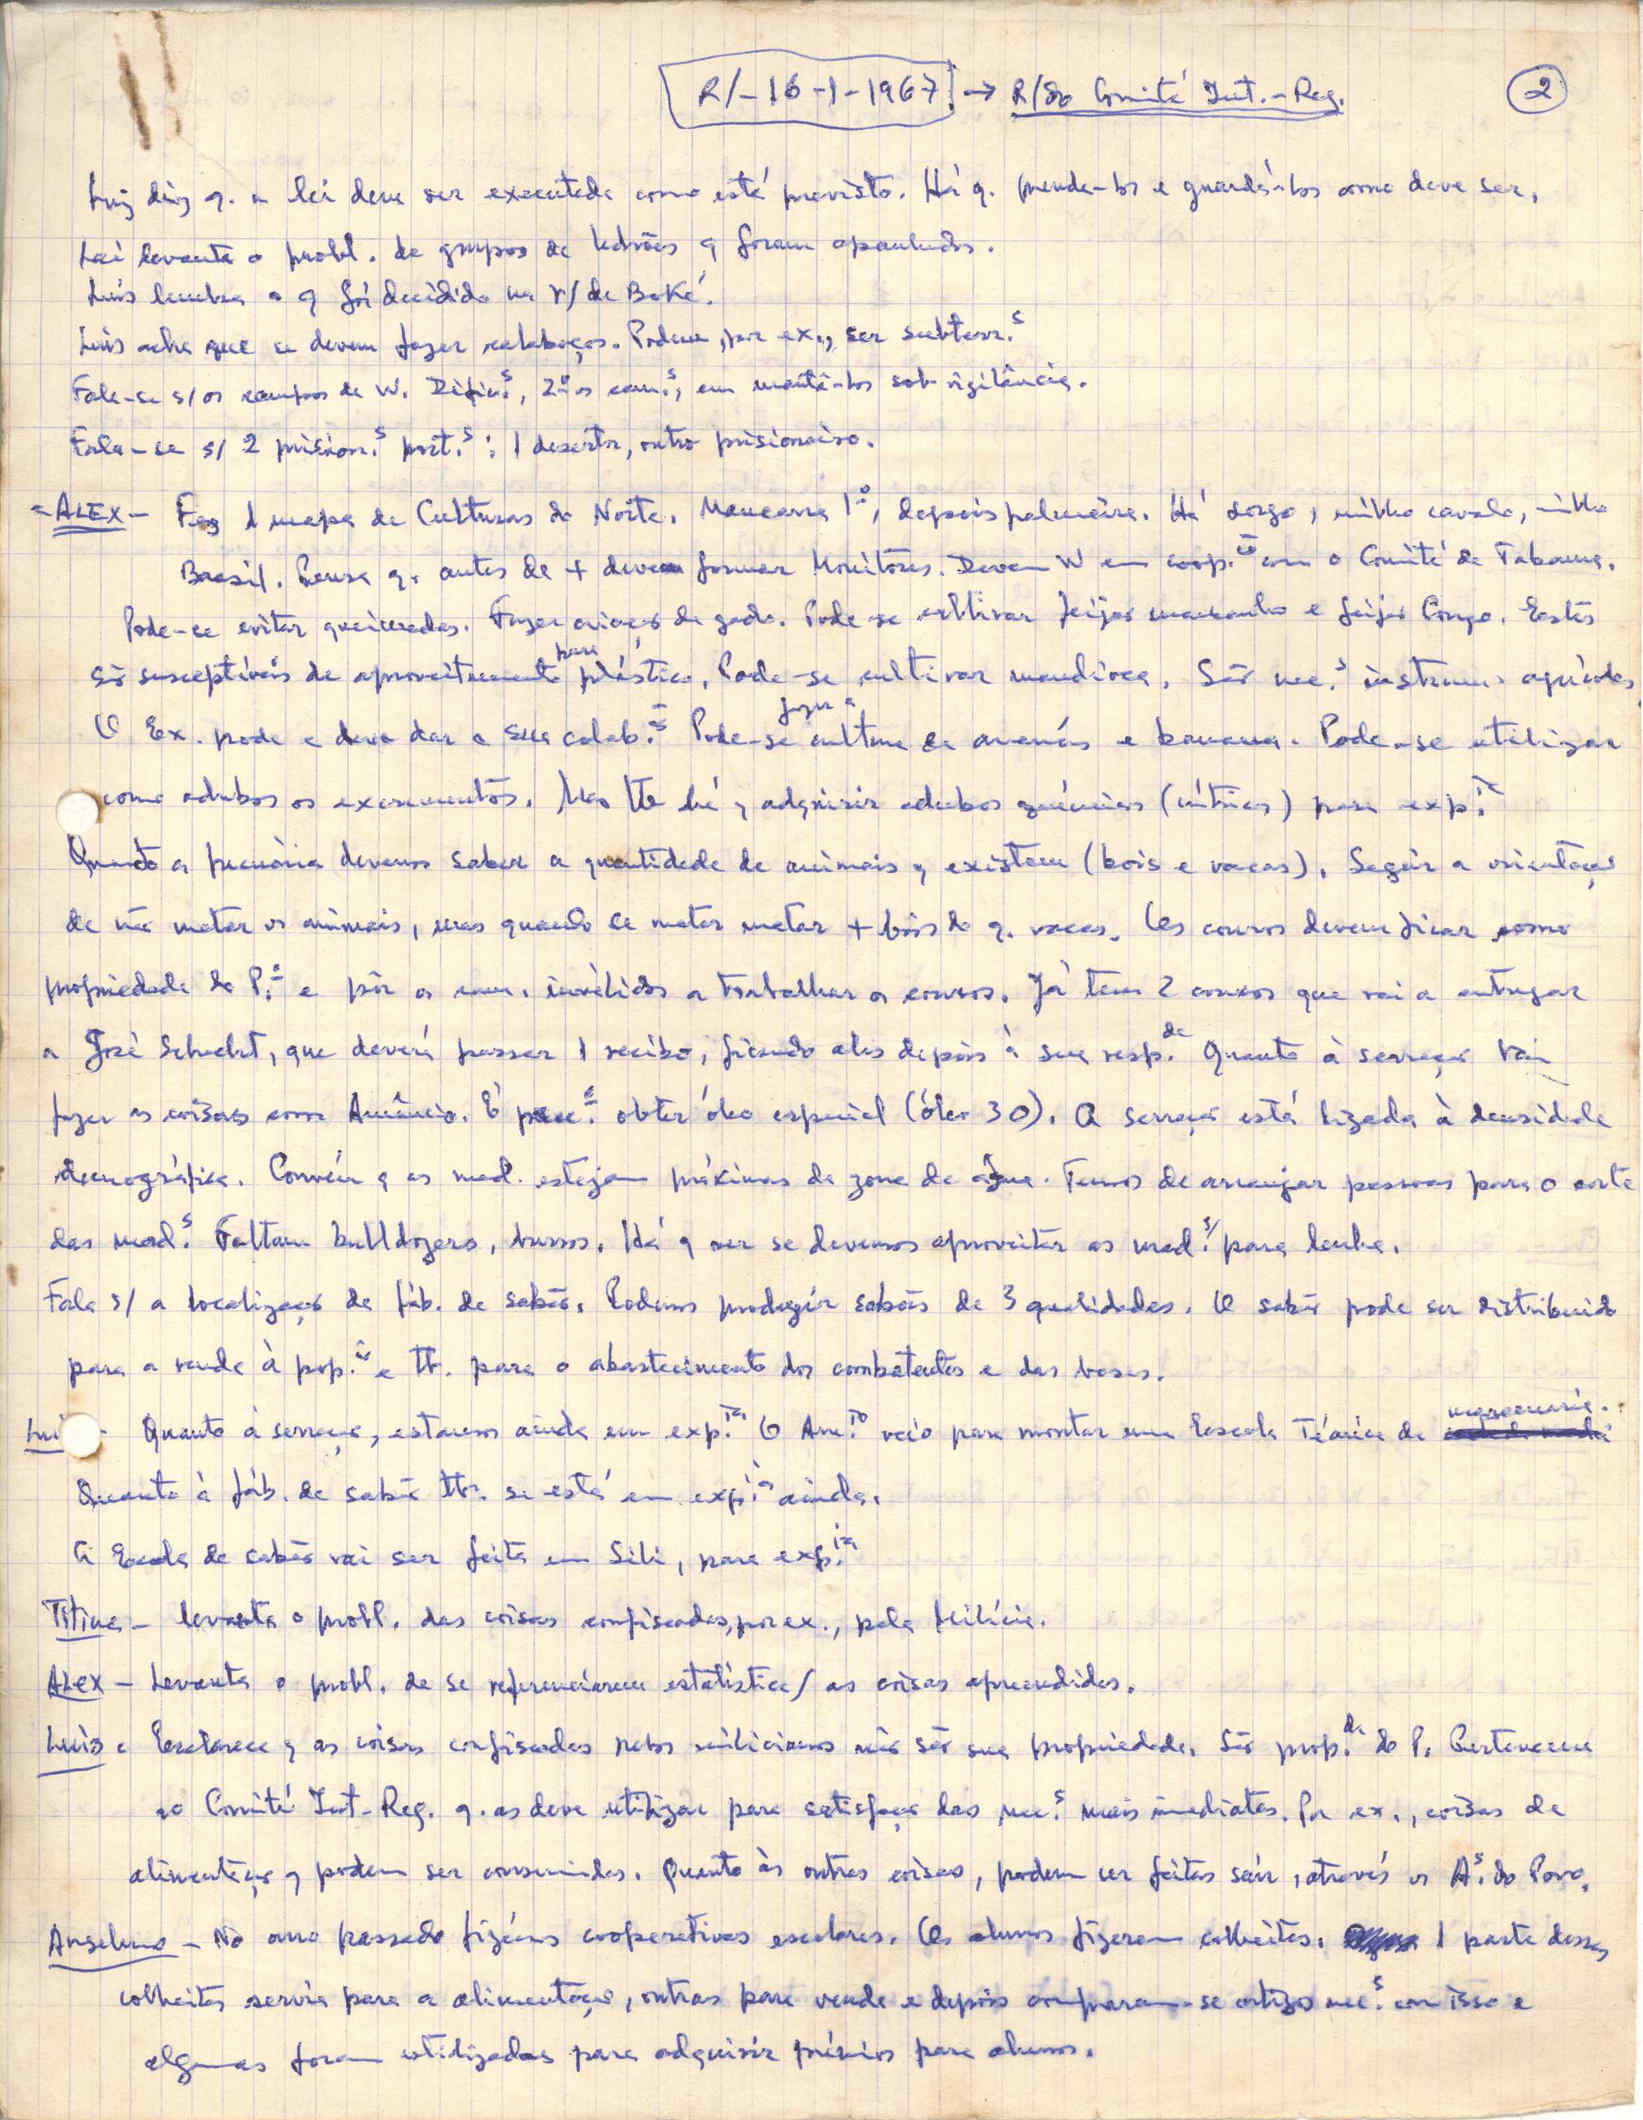 R/-16-1-1967 → R/do Comité Int.-Reg. 2
Luiz diz q. a lei deve ser executada como está previsto. Há q. prende-los e guardá-los como deve ser.
Lai levanta o probl. de grupos de ladrões q foram apanhados.
Luis lembra o q foi decidido na r/ de Boké.
Luis acha que se devem fazer calabouços. Podem, por ex., ser subterr.s
Fala-se s/ os campos de W. Dific.s, 2º os cam.s, em mantê-los sob vigilância.
Fala-se s/ 2 prision.s port.s: 1 desertor, outro prisioneiro.
- ALEX - Fez 1 mapa de Culturas do Norte. Mancarra 1º, depois palmeira. Há sorgo, milho cavalo, milho
Brasil. Pensa q. antes de + devem formar Monitores. Devem W em coop.ão com o Comité de Tabanca.
Pode-se evitar queimadas. Fazer criação de gado. Pode-se cultivar feijão macanho e feijão Congo. Estes
são susceptíveis de aproveitamento para plástico. Pode-se cultivar mandioca. São nec.s instrum. agrícolas
O Ex. pode e deve dar a sua colab.ão Pode-se fazer a cultura de ananás e banana. Pode-se utilizar
como adubos os excrementos. Mas tb há q adquirir adubos químicos (nítricos) para exp.ia
Quanto a pecuária devemos saber a quantidade de animais q existem (bois e vacas). Seguir a orientação
de não matar os animais, mas quando se matar matar + bois do q. vacas. Os couros devem ficar como
propriedade do P.º e pôr os cam. inválidos a trabalhar os couros. Já tem 2 couros que vai a entregar
a José Schacht, que deverá passar 1 recibo, ficando eles depois à sua resp.de Quanto à serração vai
fazer as coisas com Amâncio. É prec.º obter óleo especial (óleo 30). A serração está ligada à densidade
demográfica. Convém q as mad. estejam próximas da zona de água. Temos de arranjar pessoas para o corte
das mad.s Faltam bulldozers, burros. Há q ver se devemos aproveitar as mad.s/ para lenha.
Fala s/ a localização da fáb. de sabão. Podemos produzir sabões de 3 qualidades. O sabão pode ser distribuido
para a venda à pop.ão e tb. para o abastecimento dos combatentes e das bases.
Lui - Quanto à serração, estamos ainda em exp.ia O Am.io veio para montar uma Escola Técnica de marcenaria.
Quanto à fáb. de sabão tb. se está em exp.ia ainda.
A Escola de sabão vai ser feita em Sili, para exp.ia
Titina - levanta o probl. das coisas confiscadas, por ex., pela Milícia.
ALEX - Levanta o probl. de se referenciarem estatística/ as coisas apreendidas.
Luiz - Esclarece q as coisas confiscadas pelos milicianos não são sua propriedade. São prop.de do P. Pertencem
ao Comité Int-Reg. q. as deve utilizar para satisfação das nec.s mais imediatas. Por ex., coisas de
alimentação q podem ser consumidas. Quanto às outras coisas, podem ser feitas sair, através os A.s do Povo.
Anselmo - No ano passado fizémos cooperativas escolares. Os alunos fizeram colheitas. 1 parte dessas
colheitas servia para a alimentação, outras para venda e depois compraram-se artigos nec.s com isso e
algumas foram utilizadas para adquirir prémios para alunos.